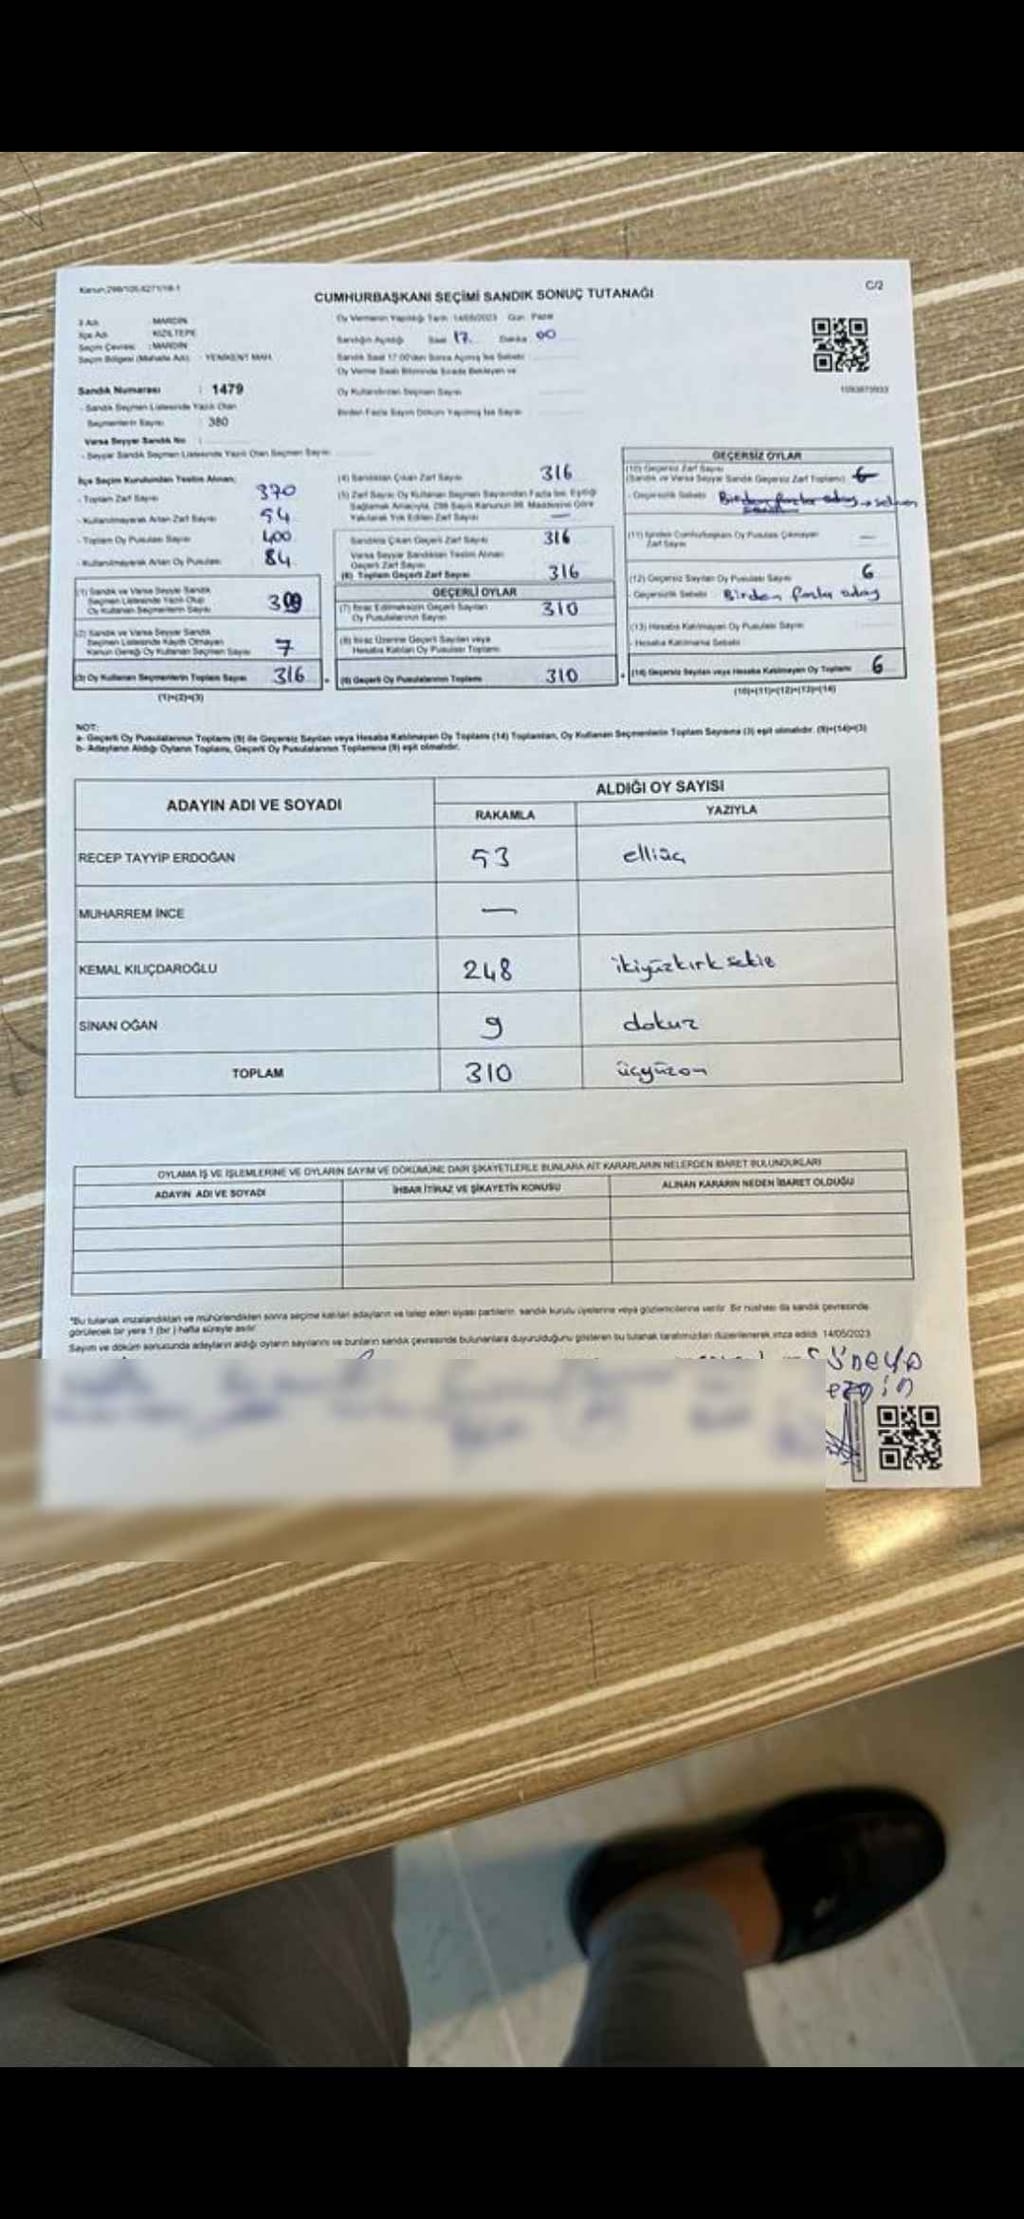 Kanun:298/105,6271/18-1
C/2
CUMHURBAŞKANI SEÇİMİ SANDIK SONUÇ TUTANAĞI
İl Adı : MARDİN
İlçe Adı : KIZILTEPE
Seçim Çevresi : MARDİN
Seçim Bölgesi (Mahalle Adı) : YENİKENT MAH.
Sandık Numarası : 1479
- Sandık Seçmen Listesinde Yazılı Olan
Seçmenlerin Sayısı : 380
Varsa Seyyar Sandık No :
- Seyyar Sandık Seçmen Listesinde Yazılı Olan Seçmen Sayısı
Oy Vermenin Yapıldığı Tarih :14/05/2023 Gün: Pazar
Sandığın Açıldığı Saat 17 Dakika 00
Sandık Saat 17.00'den Sonra Açılmış İse Sebebi
Oy Verme Saati Bitiminde Sırada Bekleyen ve
Oy Kullandırılan Seçmen Sayısı
Birden Fazla Sayım Döküm Yapılmış İse Sayısı
1093870933
İlçe Seçim Kurulundan Teslim Alınan;
- Toplam Zarf Sayısı 370
- Kullanılmayarak Artan Zarf Sayısı 54
- Toplam Oy Pusulası Sayısı 400
- Kullanılmayarak Artan Oy Pusulası 84
(1) Sandık ve Varsa Seyyar Sandık
Seçmen Listesinde Yazılı Olup
Oy Kullanan Seçmenlerin Sayısı 309
(2) Sandık ve Varsa Seyyar Sandık
Seçmen Listesinde Kayıtlı Olmayan
Kanun Gereği Oy Kullanan Seçmen Sayısı 7
(3) Oy Kullanan Seçmenlerin Toplam Sayısı 316
(1)+(2)=(3)
(4) Sandıktan Çıkan Zarf Sayısı 316
(5) Zarf Sayısı Oy Kullanan Seçmen Sayısından Fazla İse, Eşitliği
Sağlamak Amacıyla, 298 Sayılı Kanunun 98. Maddesine Göre
Yakılarak Yok Edilen Zarf Sayısı —
Sandıkta Çıkan Geçerli Zarf Sayısı 316
Varsa Seyyar Sandıktan Teslim Alınan
Geçerli Zarf Sayısı
(6) Toplam Geçerli Zarf Sayısı 316
GEÇERLİ OYLAR
(7) İtiraz Edilmeksizin Geçerli Sayılan
Oy Pusulalarının Sayısı 310
(8) İtiraz Üzerine Geçerli Sayılan veya
Hesaba Katılan Oy Pusulası Toplamı
(9) Geçerli Oy Pusulalarının Toplamı 310
GEÇERSİZ OYLAR
(10) Geçersiz Zarf Sayısı
(Sandık ve Varsa Seyyar Sandık Geçersiz Zarf Toplamı) 6
- Geçersizlik Sebebi Birden fazla aday
(11) İçinden Cumhurbaşkanı Oy Pusulası Çıkmayan
Zarf Sayısı —
(12) Geçersiz Sayılan Oy Pusulası Sayısı 6
- Geçersizlik Sebebi Birden fazla aday
(13) Hesaba Katılmayan Oy Pusulası Sayısı
- Hesaba Katılmama Sebebi
(14) Geçersiz Sayılan veya Hesaba Katılmayan Oy Toplamı 6
(10)+(11)+(12)+(13)=(14)
NOT:
a- Geçerli Oy Pusulalarının Toplamı (9) ile Geçersiz Sayılan veya Hesaba Katılmayan Oy Toplamı (14) Toplamları, Oy Kullanan Seçmenlerin Toplam Sayısına (3) eşit olmalıdır. (9)+(14)=(3)
b- Adayların Aldığı Oyların Toplamı, Geçerli Oy Pusulalarının Toplamına (9) eşit olmalıdır.
ADAYIN ADI VE SOYADI
ALDIĞI OY SAYISI
RAKAMLA YAZIYLA
RECEP TAYYİP ERDOĞAN 53 elliüç
MUHARREM İNCE —
KEMAL KILIÇDAROĞLU 248 ikiyüzkırksekiz
SİNAN OĞAN 9 dokuz
TOPLAM 310 üçyüzon
OYLAMA İŞ VE İŞLEMLERİNE VE OYLARIN SAYIM VE DÖKÜMÜNE DAİR ŞİKAYETLERLE BUNLARA AİT KARARLARIN NELERDEN İBARET BULUNDUKLARI
ADAYIN ADI VE SOYADI İHBAR İTİRAZ VE ŞİKAYETİN KONUSU ALINAN KARARIN NEDEN İBARET OLDUĞU
*Bu tutanak imzalandıktan ve mühürlendikten sonra seçime katılan adayların ve talep eden siyasi partilerin, sandık kurulu üyelerine veya gözlemcilerine verilir. Bir nüshası da sandık çevresinde
görülecek bir yere 1 (bir ) hafta süreyle asılır.
Sayım ve döküm sonucunda adayların aldığı oyların sayılarını ve bunların sandık çevresinde bulunanlara duyurulduğunu gösteren bu tutanak tarafımızdan düzenlenerek imza edildi. 14/05/2023